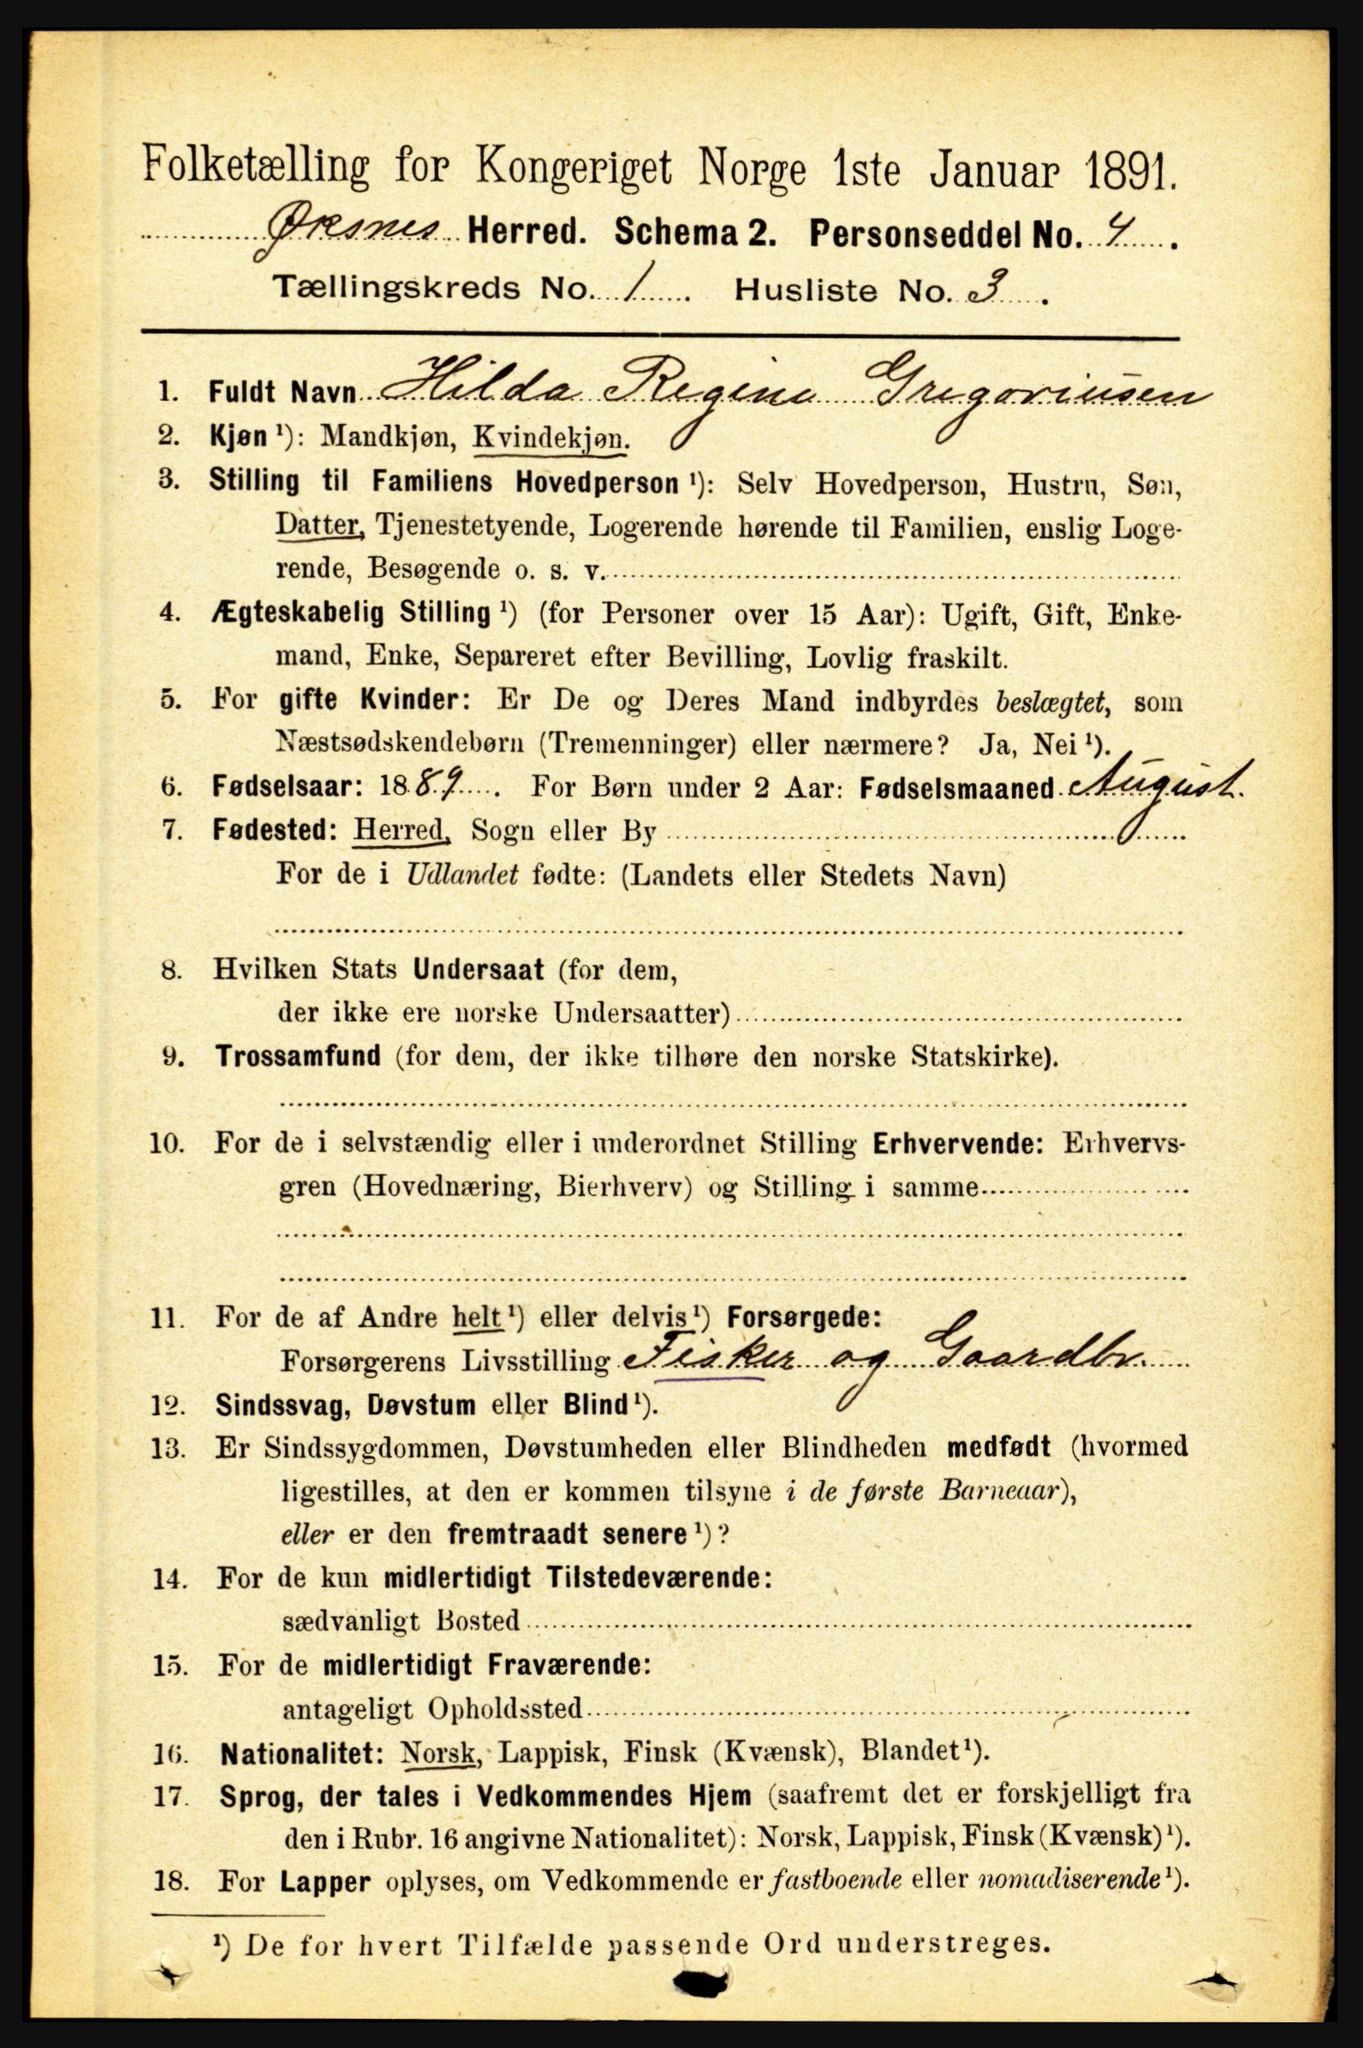 Folketælling for Kongeriget Norge 1ste Januar 1891.
Øksnes Herred. Schema 2. Personseddel No. 4.
Tællingskreds No. 1. Husliste No. 3.
1. Fuldt Navn Hilda Regine Gregoriusen
2. Kjøn ¹): Mandkjøn, Kvindekjøn.
3. Stilling til Familiens Hovedperson ¹): Selv Hovedperson, Hustru, Søn,
Datter, Tjenestetyende, Logerende hørende til Familien, enslig Loge-
rende, Besøgende o. s. v.
4. Ægteskabelig Stilling ¹) (for Personer over 15 Aar): Ugift, Gift, Enke-
mand, Enke, Separeret efter Bevilling, Lovlig fraskilt.
5. For gifte Kvinder: Er De og Deres Mand indbyrdes beslægtet, som
Næstsødskendebørn (Tremenninger) eller nærmere? Ja, Nei ¹).
6. Fødselsaar: 1889. For Børn under 2 Aar: Fødselsmaaned August.
7. Fødested: Herred, Sogn eller By
For de i Udlandet fødte: (Landets eller Stedets Navn)
8. Hvilken Stats Undersaat (for dem,
der ikke ere norske Undersaatter)
9. Trossamfund (for dem, der ikke tilhøre den norske Statskirke).
10. For de i selvstændig eller i underordnet Stilling Erhvervende: Erhvervs-
gren (Hovednæring, Bierhverv) og Stilling i samme
11. For de af Andre helt ¹) eller delvis ¹) Forsørgede:
Forsørgerens Livsstilling Fisker og Gaardbr.
12. Sindssvag, Døvstum eller Blind ¹).
13. Er Sindssygdommen, Døvstumheden eller Blindheden medfødt (hvormed
ligestilles, at den er kommen tilsyne i de første Barneaar),
eller er den fremtraadt senere ¹)?
14. For de kun midlertidigt Tilstedeværende:
sædvanligt Bosted
15. For de midlertidigt Fraværende:
antageligt Opholdssted
16. Nationalitet: Norsk, Lappisk, Finsk (Kvænsk), Blandet ¹).
17. Sprog, der tales i Vedkommendes Hjem (saafremt det er forskjelligt fra
den i Rubr. 16 angivne Nationalitet): Norsk, Lappisk, Finsk (Kvænsk) ¹).
18. For Lapper oplyses, om Vedkommende er fastboende eller nomadiserende ¹).
¹) De for hvert Tilfælde passende Ord understreges.